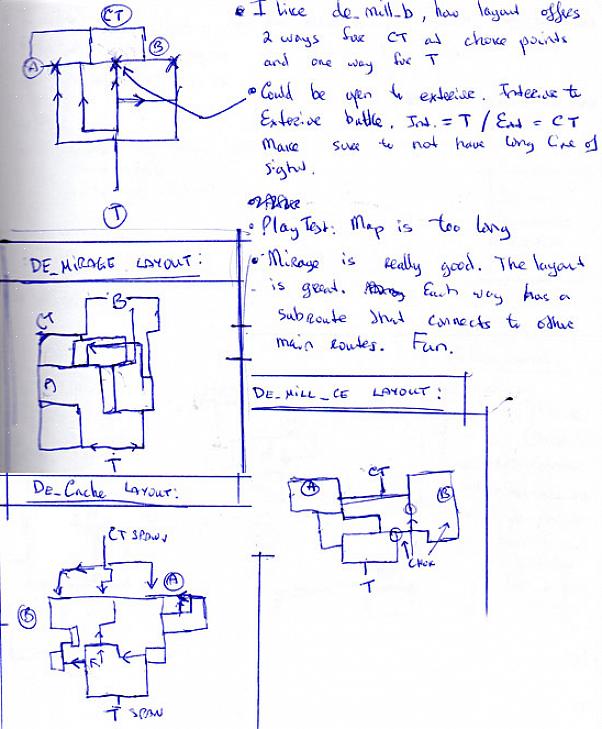 CT
A
B
T
• I like de_mill_b, how layout offers
2 ways for CT at choke points
and one way for T
• Could be open to exterior. Interior to
Exterior battle. Int. = T / Ext = CT
Make sure to not have long line of
sight.
• PlayTest: Map is too long
• Mirage is really good. The layout
is great. Each way has a
subroute that connects to other
main routes. Fun.
DE_MIRAGE LAYOUT:
B
CT
A
T
DE_MILL_CE LAYOUT:
CT
A
B
CHOK
T
DE_Cache LAYOUT:
CT SPAWN
A
B
R
T SPAWN